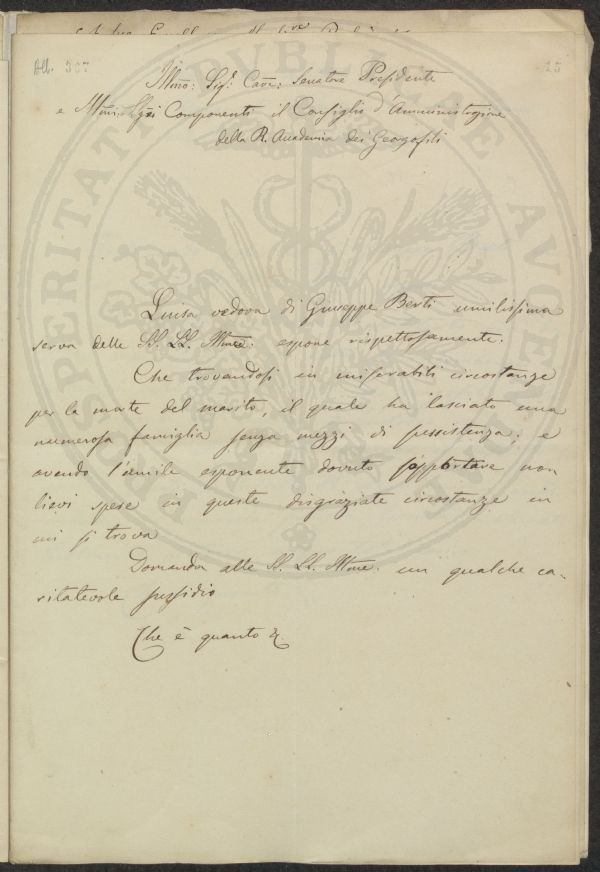 All. 307
25
Illmo: Sig.r Cav:e: Senatore Presidente
e Illmi: Sigri Componenti il Consiglio d'Amministrazione
della R. Accademia dei Georgofili
Luisa vedova di Giuseppe Berti umilissima
serva delle SS. LL. Illme. espone rispettosamente:
Che trovandosi in miserabili circostanze
per la morte del marito, il quale ha lasciato una
numerosa famiglia senza mezzi di sussistenza; e
avendo l'umile esponente dovuto sopportare non
lievi spese in queste disgraziate circostanze in
cui si trova
Domanda alle SS. LL. Illme. un qualche ca-
ritatevole sussidio
Che è quanto &.
PROSPERITATI PVBLICAE AVGENDAE